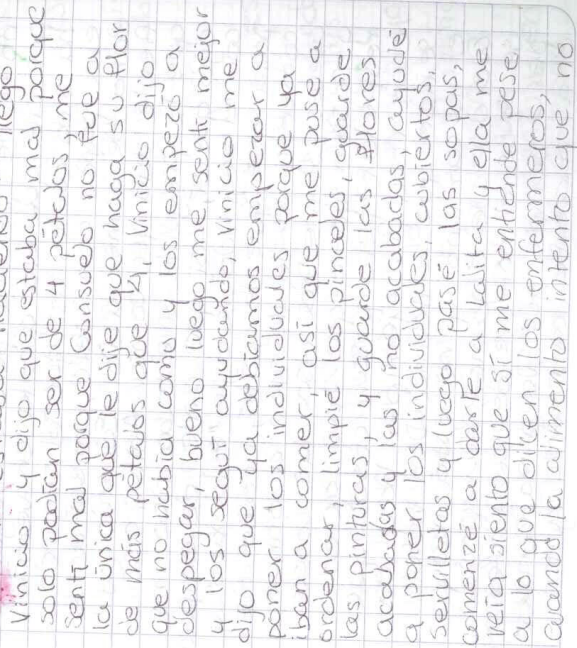 llegó
Vinicio y dijo que estaba mal porque
solo podían ser de 4 pétalos me
sentí mal porque Consuelo no fue a
la única que le dije que haga su flor
de más pétalos que 4, Vinicio dijo
que no había como y los empezó a
despegar, bueno luego me sentí mejor
y los seguí ayudando, Vinicio me
dijo que ya debíamos empezar a
poner los individuales porque ya
iban a comer, así que me puse a
ordenar, limpié los pinceles, guarde
las pinturas, y guarde las flores
acabadas y las no acabadas, ayudé
a poner los individuales, cubiertos,
servilletas y luego pasé las sopas,
comenzé a darle a Lalita y ella me
veía siento que sí me entiende pese
a lo que dicen los enfermeros,
cuando la alimento intento que no